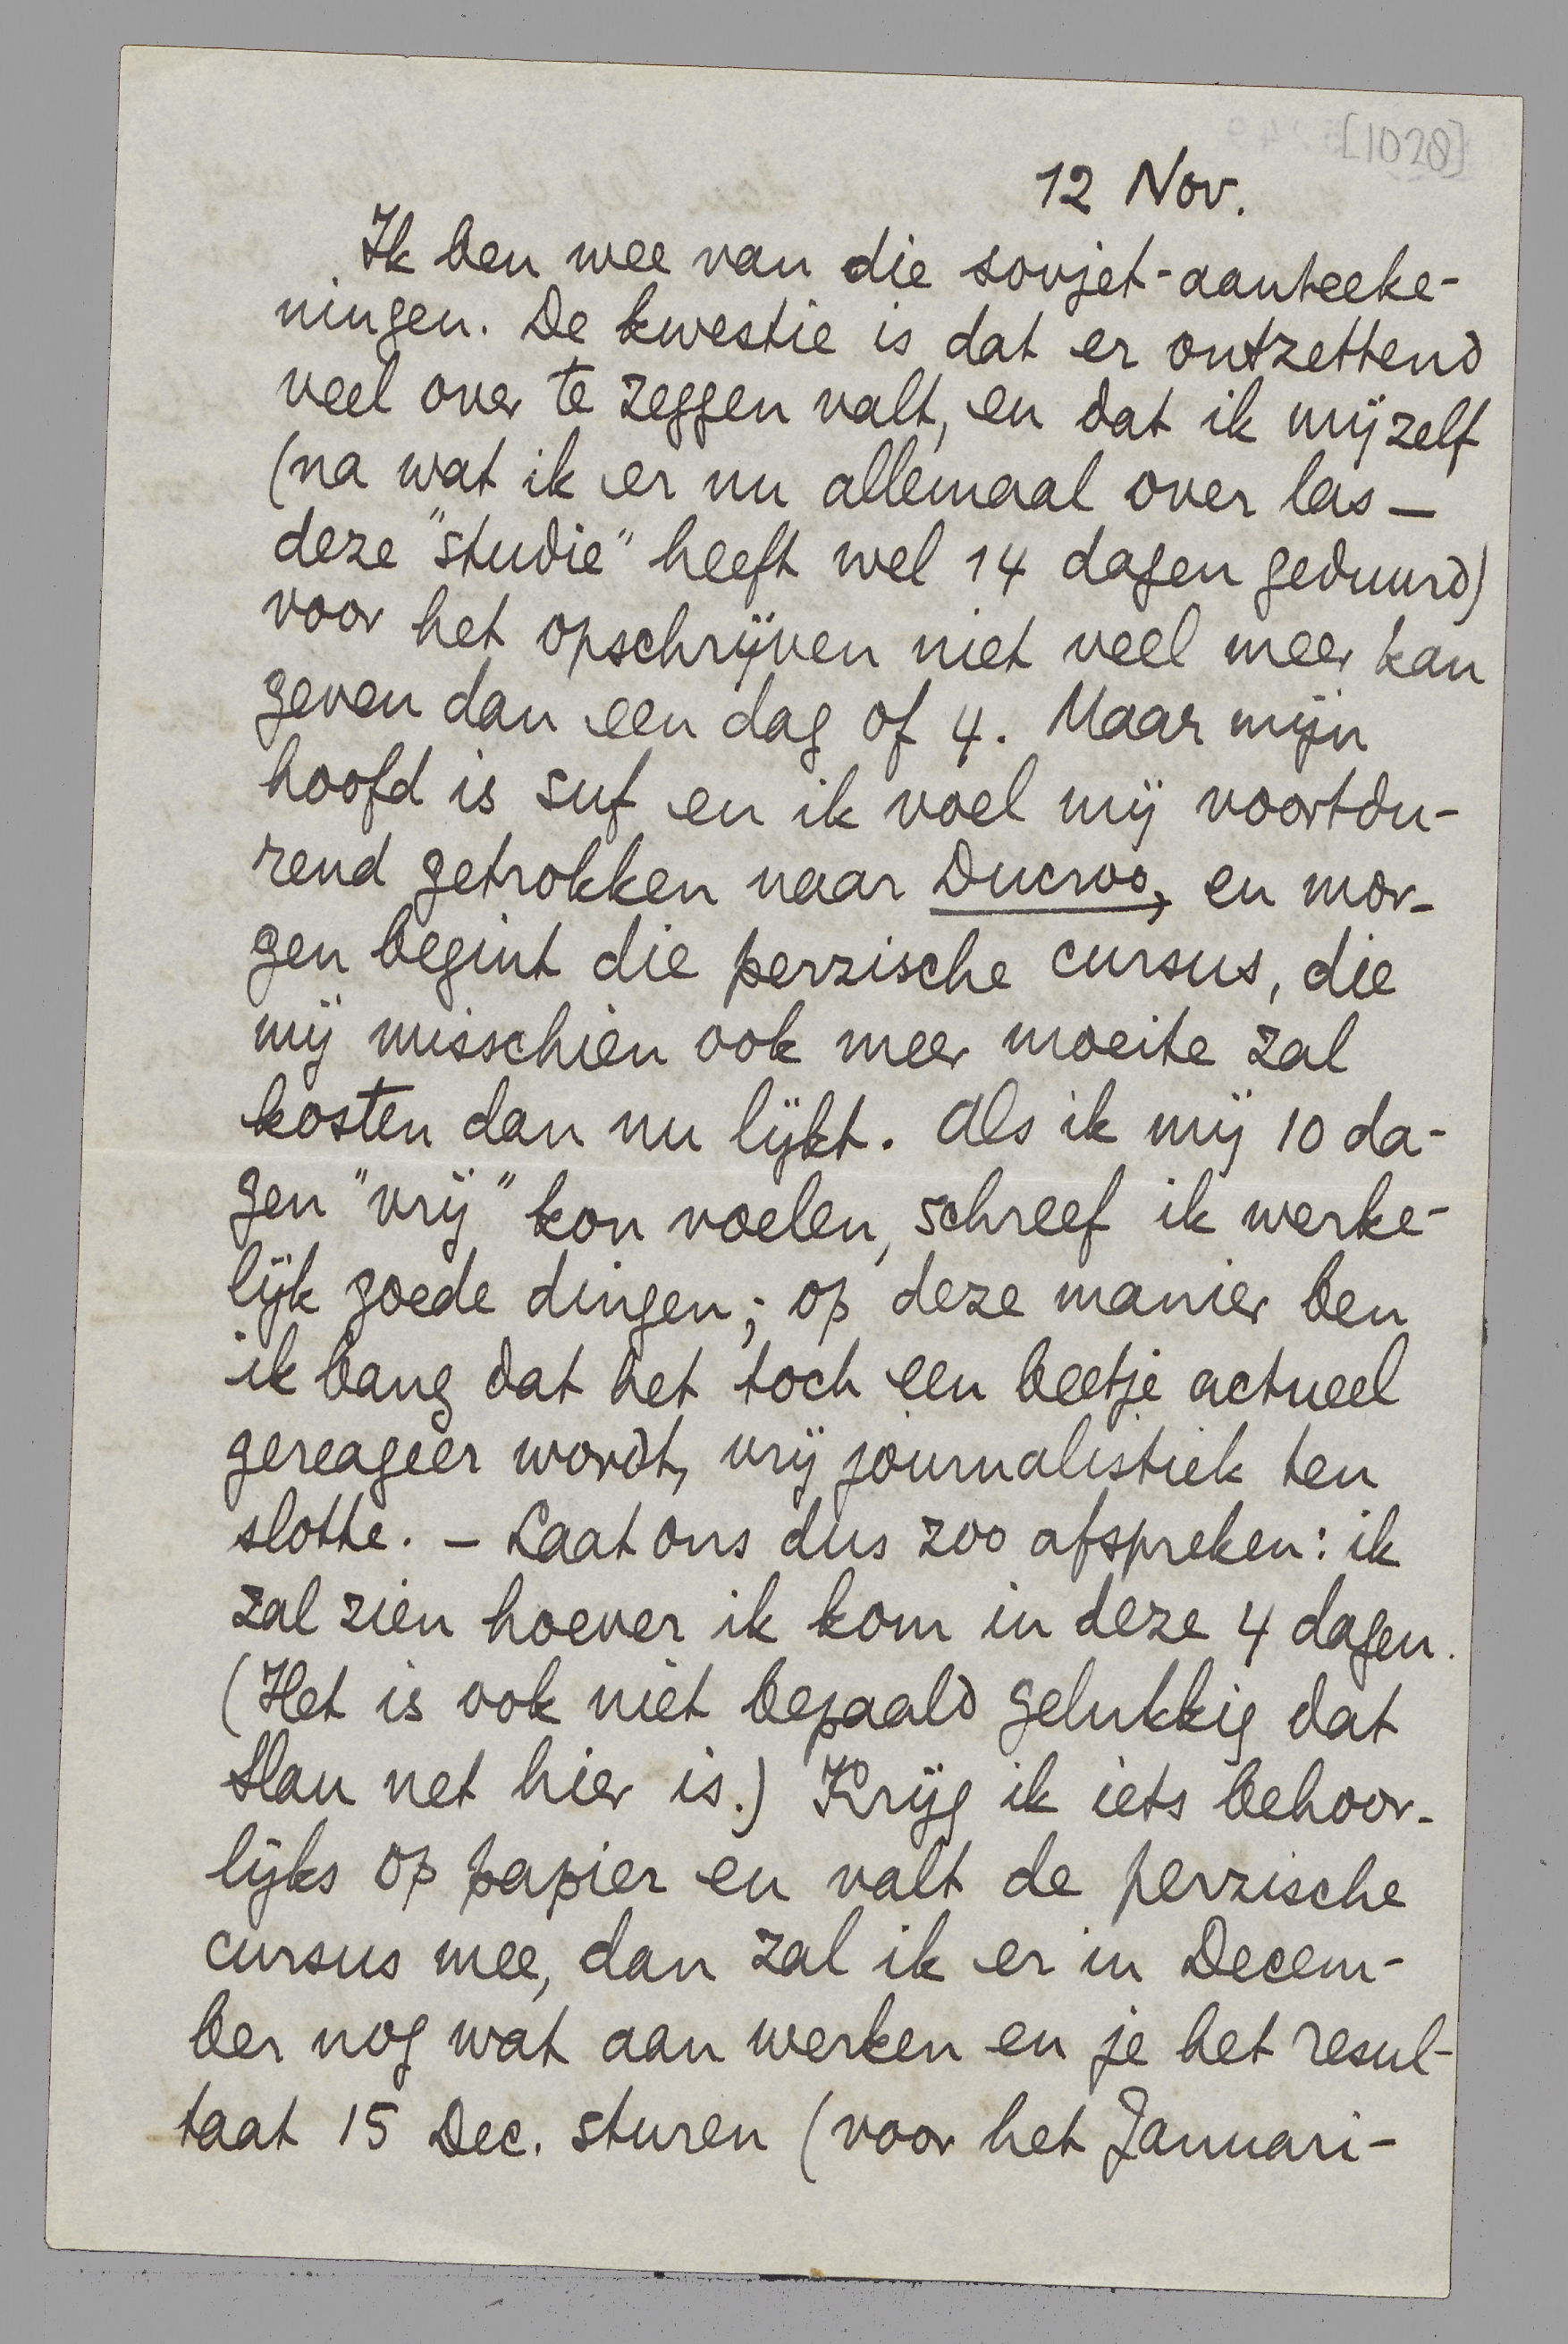 [1028]
12 Nov.
Ik ben wee van die sovjet-aanteeke-
ningen. De kwestie is dat er ontzettend
veel over te zeggen valt, en dat ik mijzelf
(na wat ik er nu allemaal over las —
deze "studie" heeft wel 14 dagen geduurd)
voor het opschrijven niet veel meer kan
geven dan een dag of 4. Maar mijn
hoofd is suf en ik voel mij voortdu-
rend getrokken naar Ducroo, en mor-
gen begint die perzische cursus, die
mij misschien ook meer moeite zal
kosten dan nu lijkt. Als ik mij 10 da-
gen "vrij" kon voelen, schreef ik werke-
lijk goede dingen; op deze manier ben
ik bang dat het toch een beetje actueel
gereageer wordt, vrij journalistiek ten
slotte. – Laat ons dus zoo afspreken: ik
zal zien hoever ik kom in deze 4 dagen.
(Het is ook niet bepaald gelukkig dat
Slau net hier is.) Krijg ik iets behoor-
lijks op papier en valt de perzische
cursus mee, dan zal ik er in Decem-
ber nog wat aan werken en je het resul-
taat 15 Dec. sturen (voor het Januari-